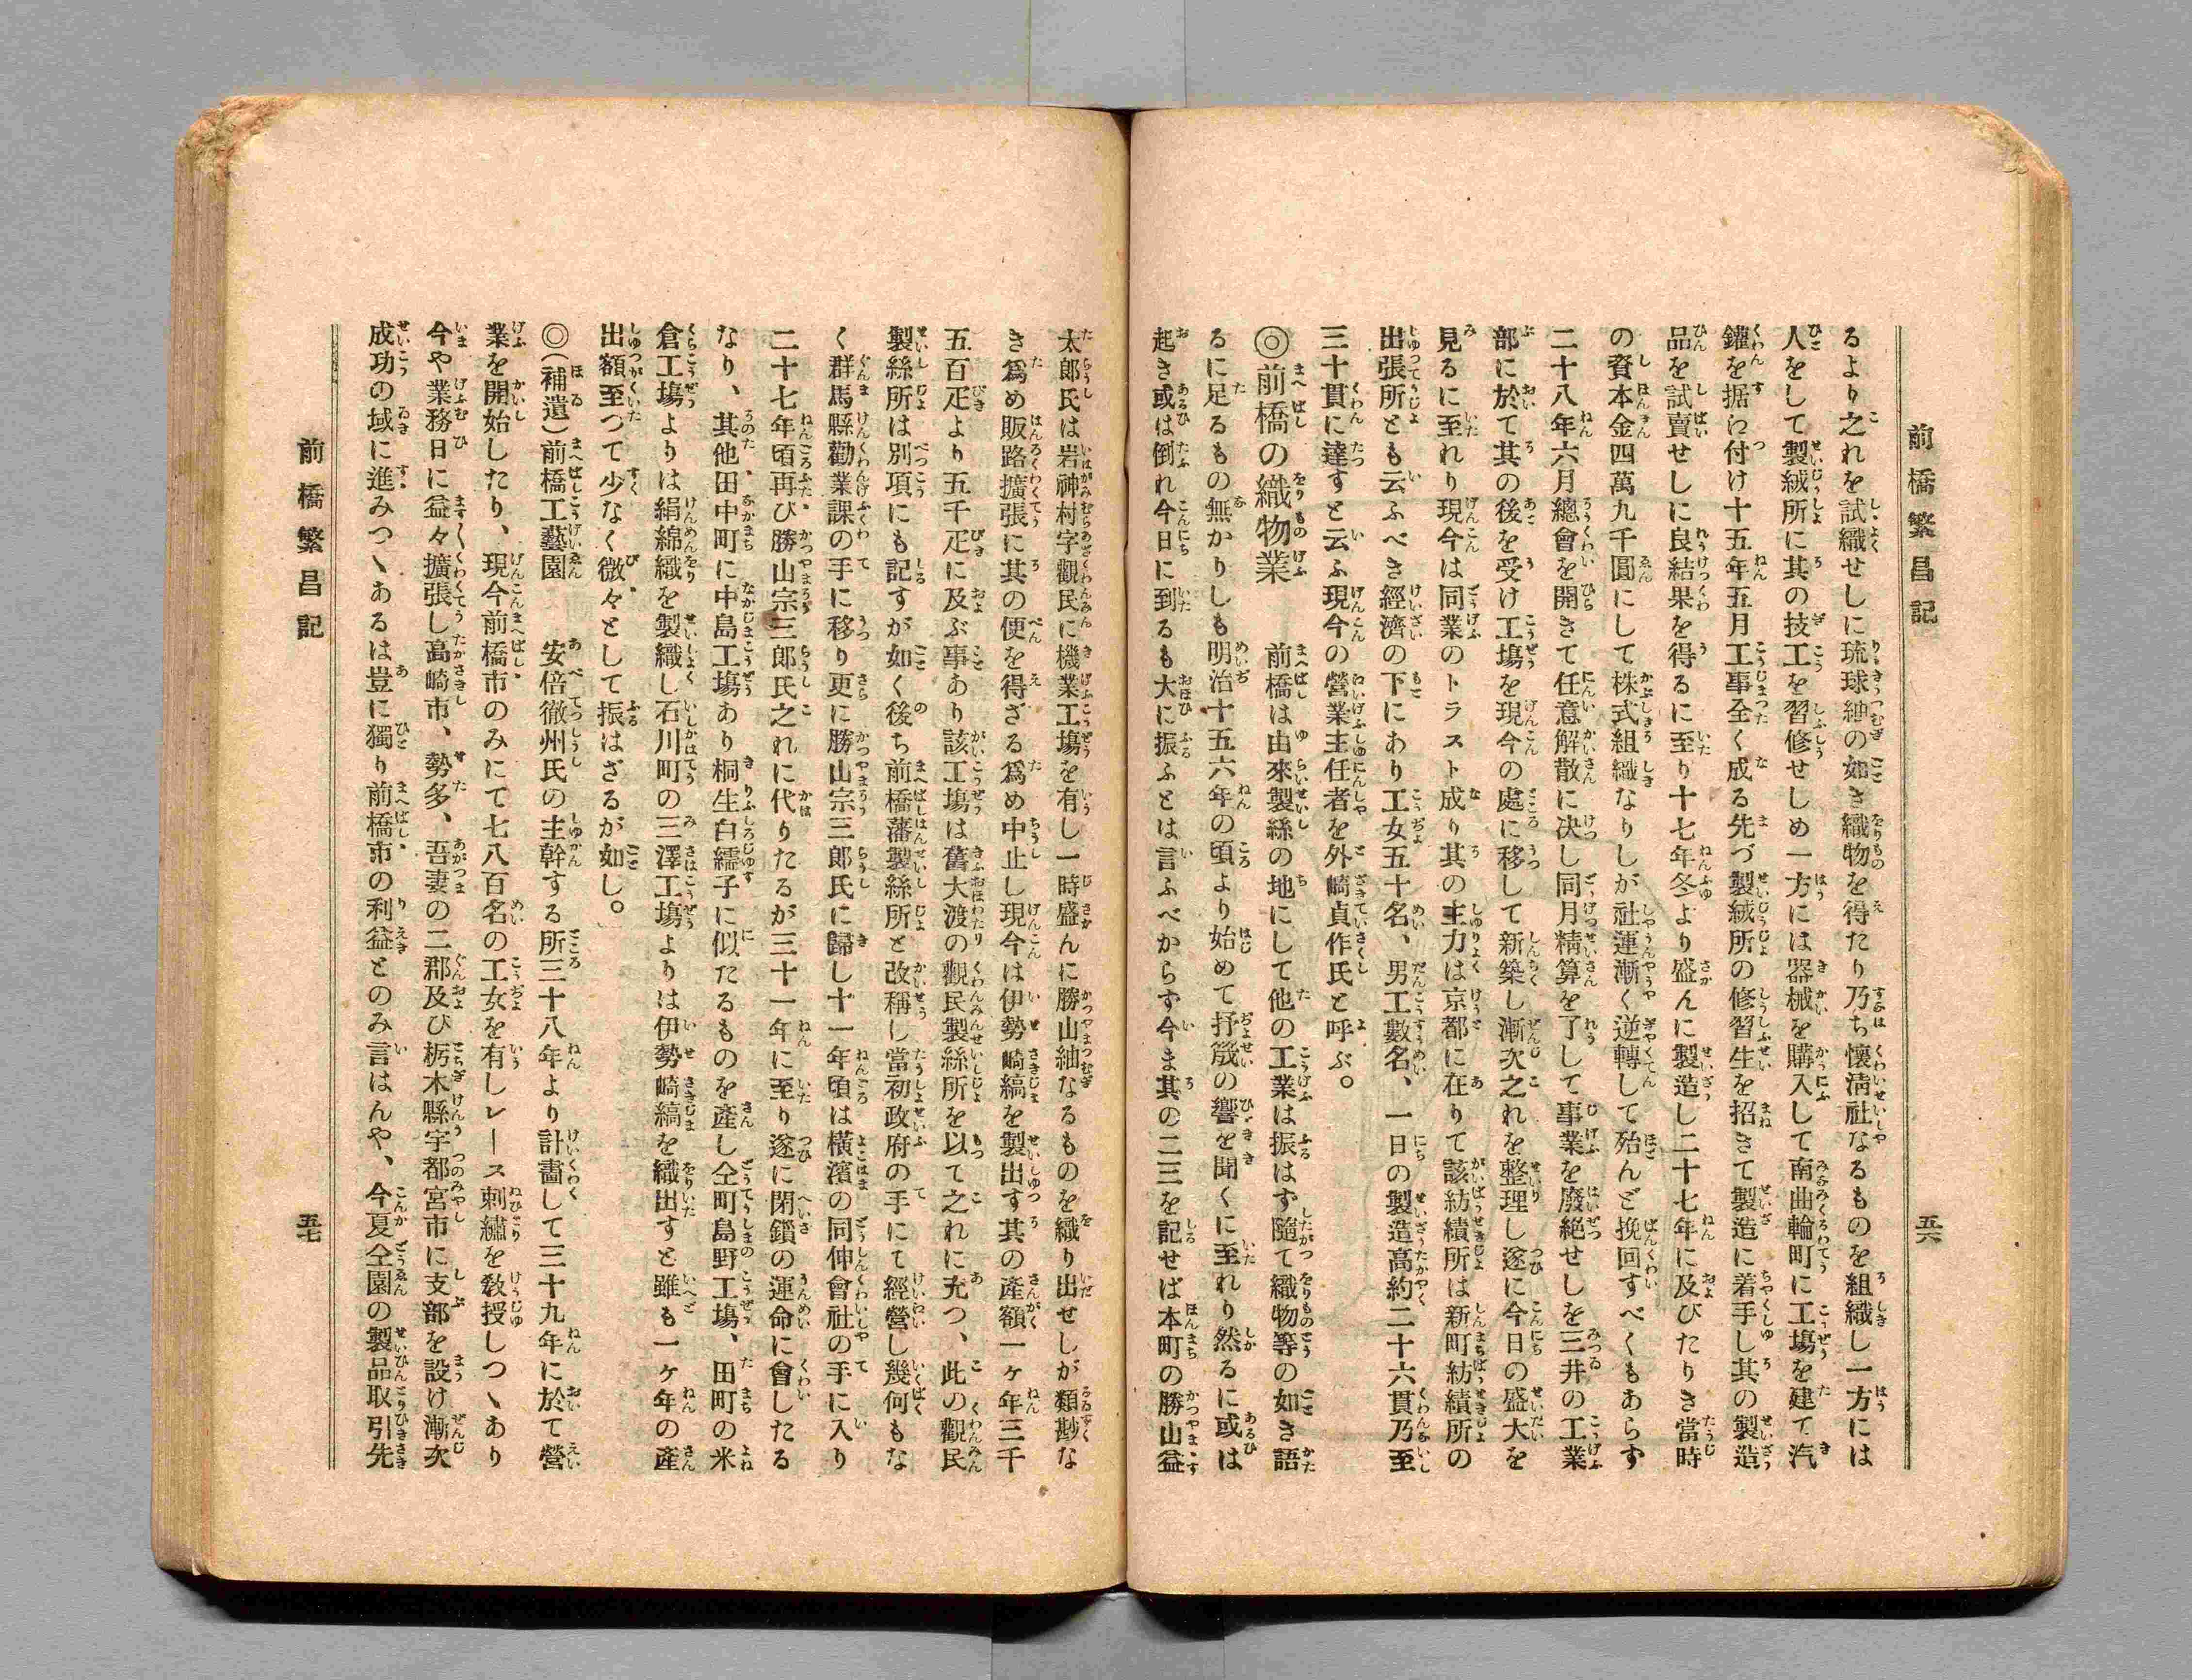 前橋繁昌記
五六
るより之れを試織せしに琉球紬の如き織物を得たり乃ち懷淸社なるものを組織し一方には
人をして製絨所に其の技工を習修せしめ一方には器械を購入して南曲輪町に工塲を建て汽
鑵を据ゑ付け十五年五月工事全く成る先づ製絨所の修習生を招きて製造に着手し其の製造
品を試賣せしに良結果を得るに至り十七年冬より盛んに製造し二十七年に及びたりき當時
の資本金四萬九千圓にして株式組織なりしが社運漸く逆轉して殆んど挽回すべくもあらず
二十八年六月總會を開きて任意解散に决し同月精算を了して事業を廢絶せしを三井の工業
部に於て其の後を受け工塲を現今の處に移して新築し漸次之れを整理し遂に今日の盛大を
見るに至れり現今は同業のトラスト成り其の主力は京都に在りて該紡績所は新町紡績所の
出張所とも云ふべき經濟の下にあり工女五十名、男工數名、一日の製造高約二十六貫乃至
三十貫に達すと云ふ現今の營業主任者を外崎貞作氏と呼ぶ。
◎前橋の織物業　前橋は由來製絲の地にして他の工業は振はず隨て織物等の如き語
るに足るもの無かりしも明治十五六年の頃より始めて抒筬の響を聞くに至れり然るに或は
起き或は倒れ今日に到るも大に振ふとは言ふべからず今ま其の二三を記せば本町の勝山益
太郎氏は岩神村字觀民に機業工塲を有し一時盛んに勝山紬なるものを織り出せしが類尠な
き爲め販路擴張に其の便を得ざる爲め中止し現今は伊勢崎縞を製出す其の產額一ヶ年三千
五百疋より五千疋に及ぶ事あり該工塲は舊大渡の觀民製絲所を以て之れに充つ、此の觀民
製絲所は別項にも記すが如く後ち前橋藩製絲所と改稱し當初政府の手にて經營し幾何もな
く群馬縣勸業課の手に移り更に勝山宗三郎氏に歸し十一年頃は橫濱の同伸會社の手に入り
二十七年頃再び勝山宗三郎氏之れに代りたるが三十一年に至り遂に閉鎖の運命に會したる
なり、其他田中町に中島工塲あり桐生白繻子に似たるものを產し仝町島野工塲、田町の米
倉工塲よりは絹綿織を製織し石川町の三澤工塲よりは伊勢崎縞を織出すと雖も一ヶ年の產
出額至つて少なく微々として振はざるが如し。
◎(補遺)前橋工藝園　安倍徹州氏の主幹する所三十八年より計畫して三十九年に於て營
業を開始したり、現今前橋市のみにて七八百名の工女を有しレース刺繡を敎授しつゝあり
今や業務日に益々擴張し高崎市、勢多、吾妻の二郡及び栃木縣宇都宮市に支部を設け漸次
成功の域に進みつゝあるは豈に獨り前橋市の利益とのみ言はんや、今夏仝園の製品取引先
前橋繁昌記
五七